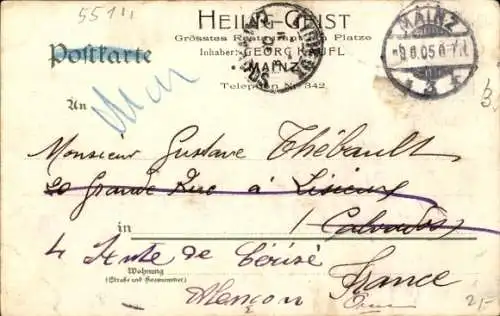 5511
HEILIG-GEIST
Grösstes Restaurant am Platze
Inhaber: GEORG KAUFL
MAINZ
Telephon Nr. 342
Postkarte
MAINZ
An
Monsieur Gustave Thébault
20 Grande Rue à Lisieux
in
Calvados
4 de
Wohnung
(Straße und Hausnummer)
France
Alençon
Orne